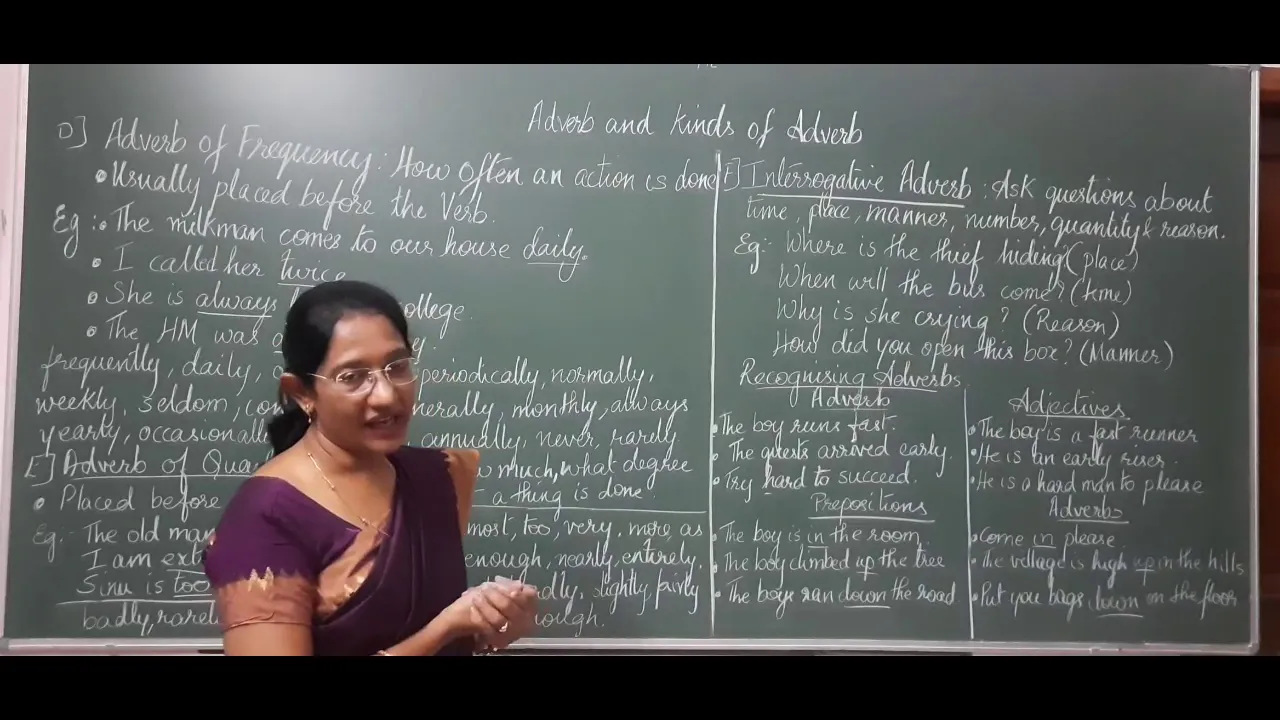 Adverb and kinds of Adverb
D] Adverb of Frequency : How often an action is done
• Usually placed before the Verb.
Eg :• The milkman comes to our house daily.
• I called her twice
• She is always college.
• The HM was
frequently, daily, periodically, normally,
weekly, seldom, monthly, always
yearly, annually, never, rarely
E] Adverb of much, what degree
• Placed before a thing is done.
Eg:- The old man too, very, more, as
I am enough, nearly, entirely,
Sinu is too slightly fairly
badly,
E] Interrogative Adverb : Ask questions about
time, place, manner, number, quantity & reason.
Eg:- Where is the thief hiding? (place)
When will the bus come? (time)
Why is she crying? (Reason)
How did you open this box? (Manner)
Recognising Adverbs
Adverb
• The boy runs fast.
• The guests arrived early.
• Try hard to succeed.
Prepositions
• The boy is in the room.
• The boy climbed up the tree
• The boys ran down the road
Adjectives
• The boy is a fast runner
• He is an early riser.
• He is a hard man to please
Adverbs
• Come in please.
• The village is high up in the hills
• Put you bags down on the floor